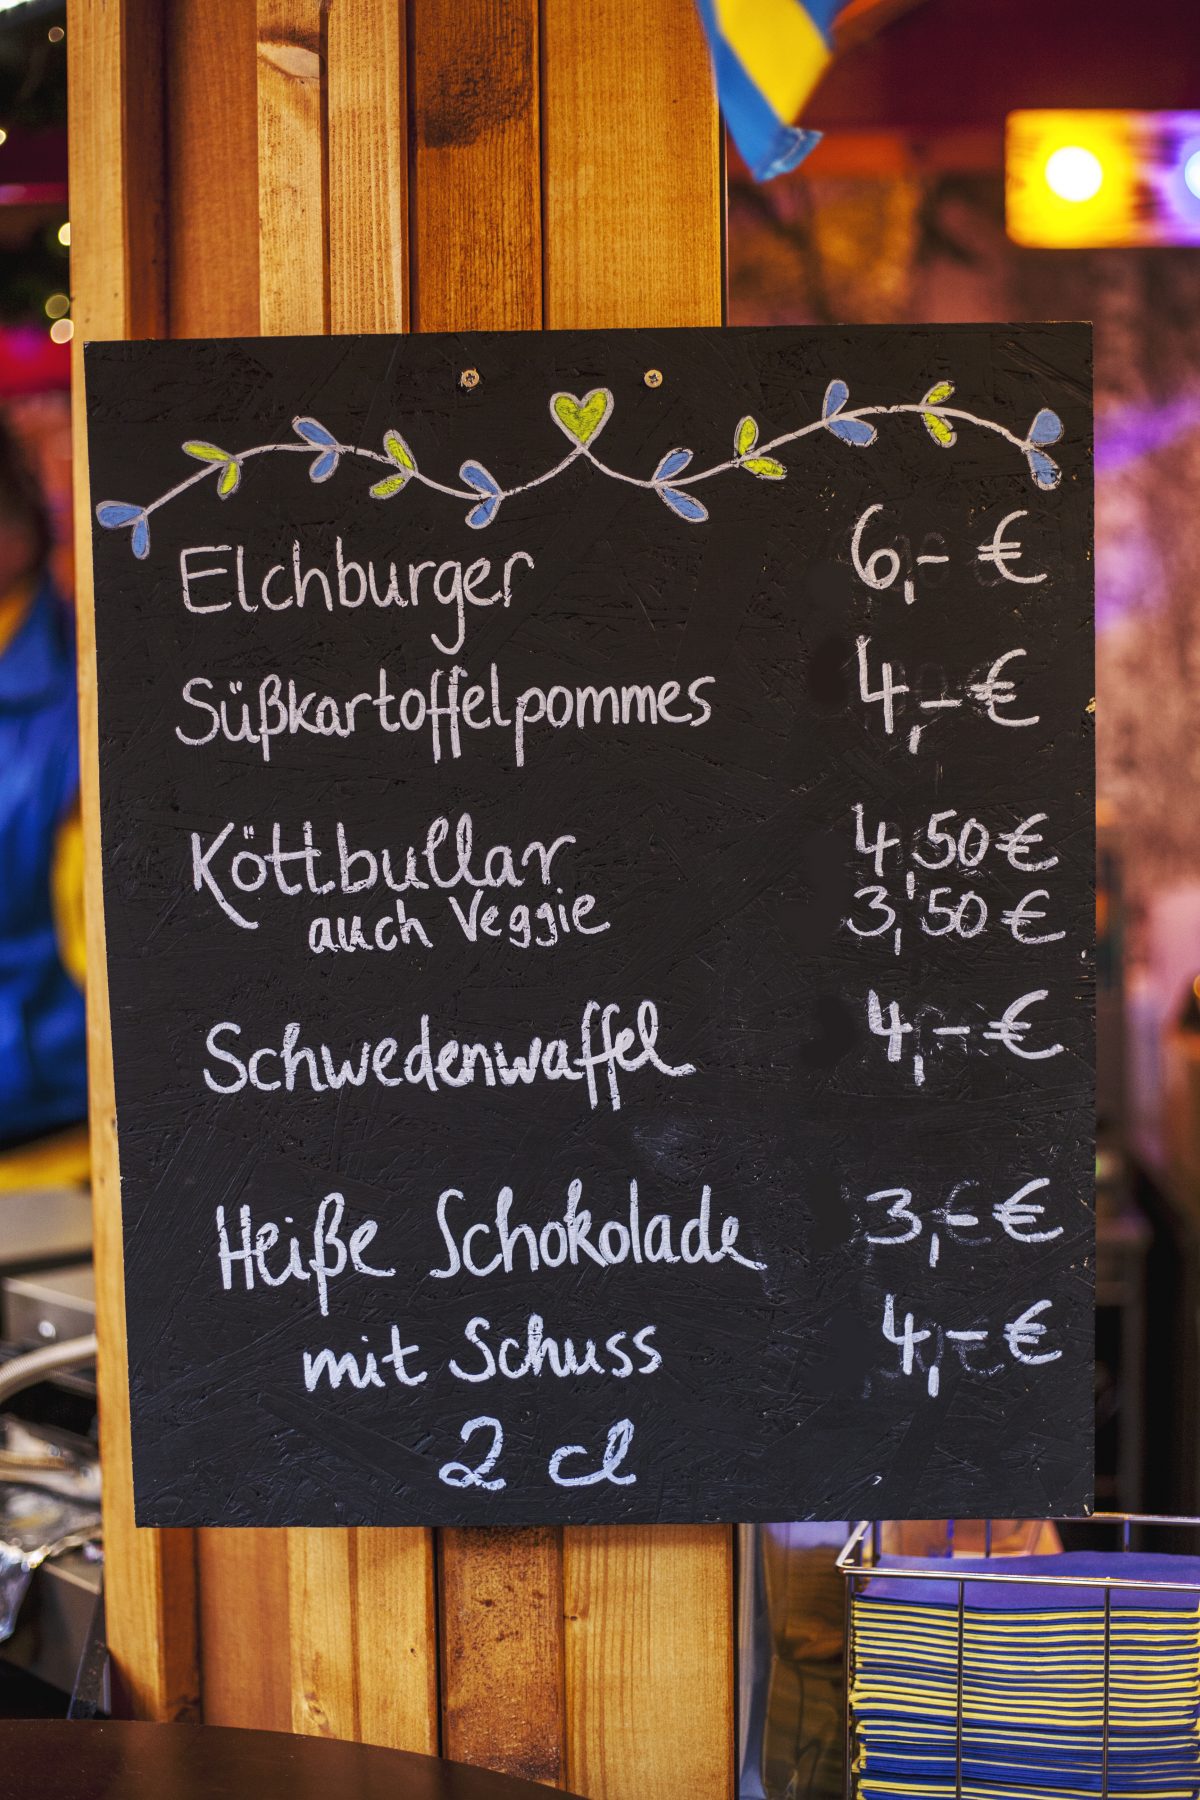 Elchburger 6,- €
Süßkartoffelpommes 4,- €
Köttbullar 4,50 €
auch Veggie 3,50 €
Schwedenwaffel 4,- €
Heiße Schokolade 3,- €
mit Schuss 4,- €
2 cl